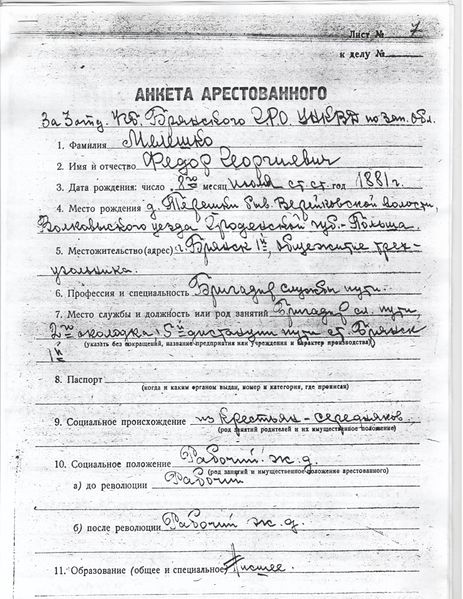 Лист № 7
к делу №
АНКЕТА АРЕСТОВАННОГО
За 3 отд. УГБ Брянского ГРО УНКВД по Зап. Обл.
1. Фамилия Мелешко
2. Имя и отчество Федор Георгиевич
3. Дата рождения: число 8го месяц июля ст. ст. год 1881 г.
4. Место рождения д. Терешки быв Верейковской волости,
Волковиского уезда Гродненской губ. - Польша.
5. Местожительство (адрес) г. Брянск 1й, общежитие трех-
угольника.
6. Профессия и специальность Бригадир службы пути.
7. Место службы и должность или род занятий Бригадир сл. пути,
2го околодка 5й дистанции пути ст. Брянск
(указать без сокращений, название предприятия или учреждения и характер производства)
1й
8. Паспорт
(когда и каким органом выдан, номер и категория, где прописан)
9. Социальное происхождение из крестьян - середняков
(род занятий родителей и их имущественное положение)
10. Социальное положение Рабочий ж. д.
(род занятий и имущественное положение арестованного)
а) до революции Рабочий
б) после революции Рабочий ж. д.
11. Образование (общее и специальное) Низшее.